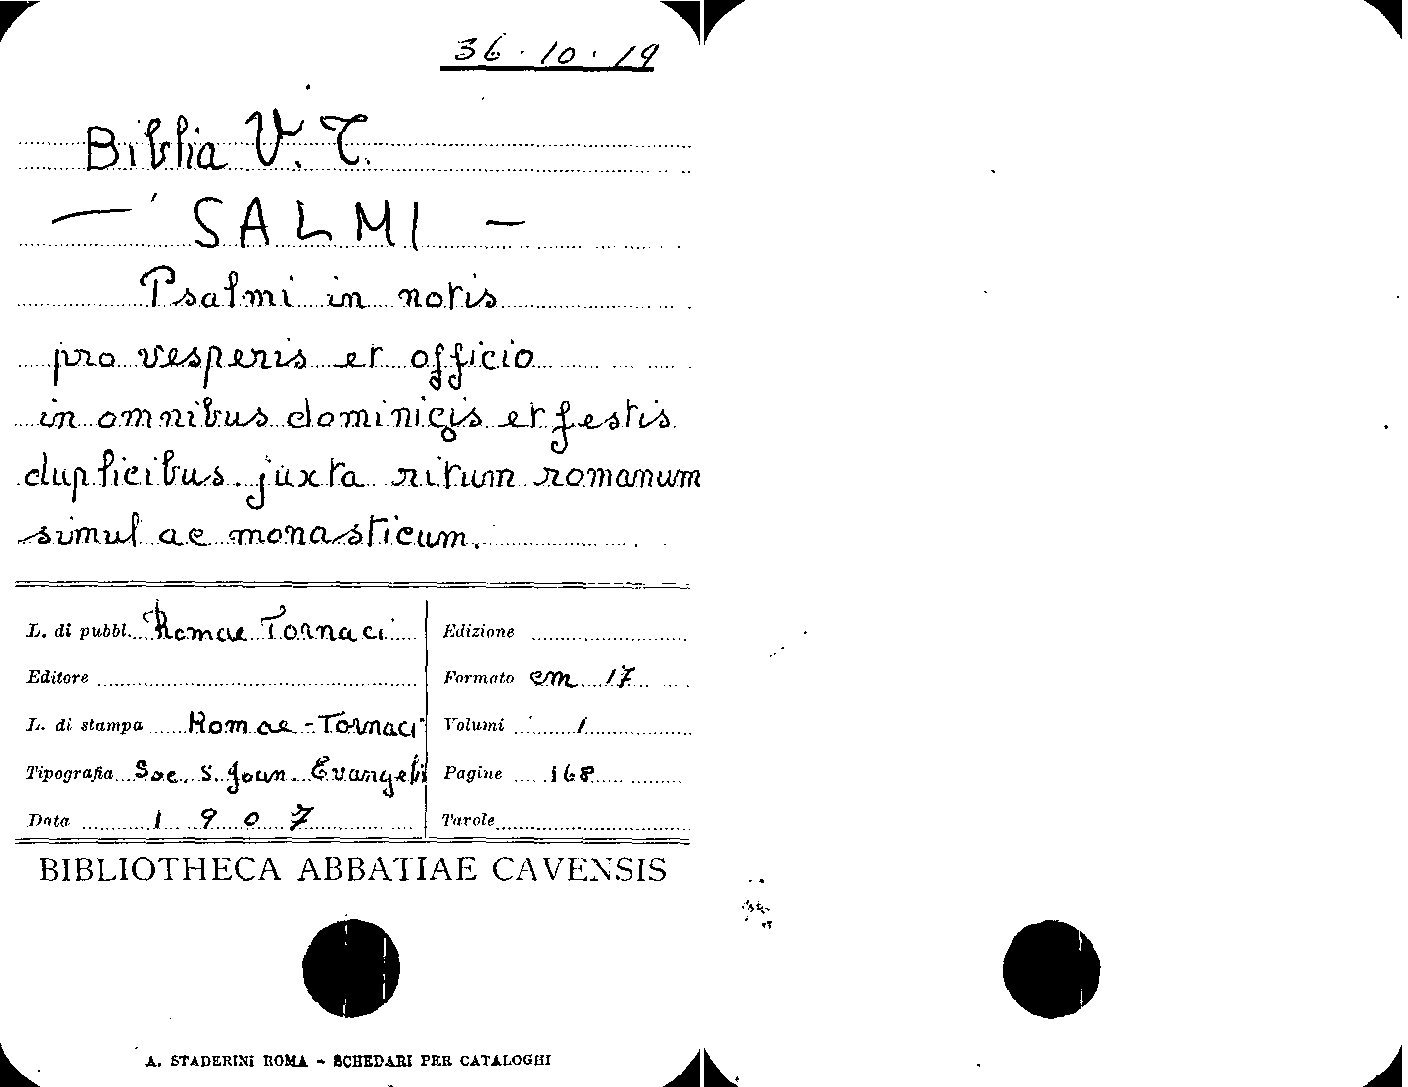 36·10·19
Biblia V. T.
— SALMI —
Psalmi in notis
pro vesperis et officio
in omnibus dominicis et festis
duplicibus juxta ritum romanum
simul ac monasticum.
L. di pubbl. Romae Tornaci
Edizione
Editore
Formato cm 17
L. di stampa Romae - Tornaci
Volumi 1
Tipografia Soc. S. Joan. Evangeli
Pagine 168
Data 1907
Tavole
BIBLIOTHECA ABBATIAE CAVENSIS
A. STADERINI ROMA - SCHEDARI PER CATALOGHI